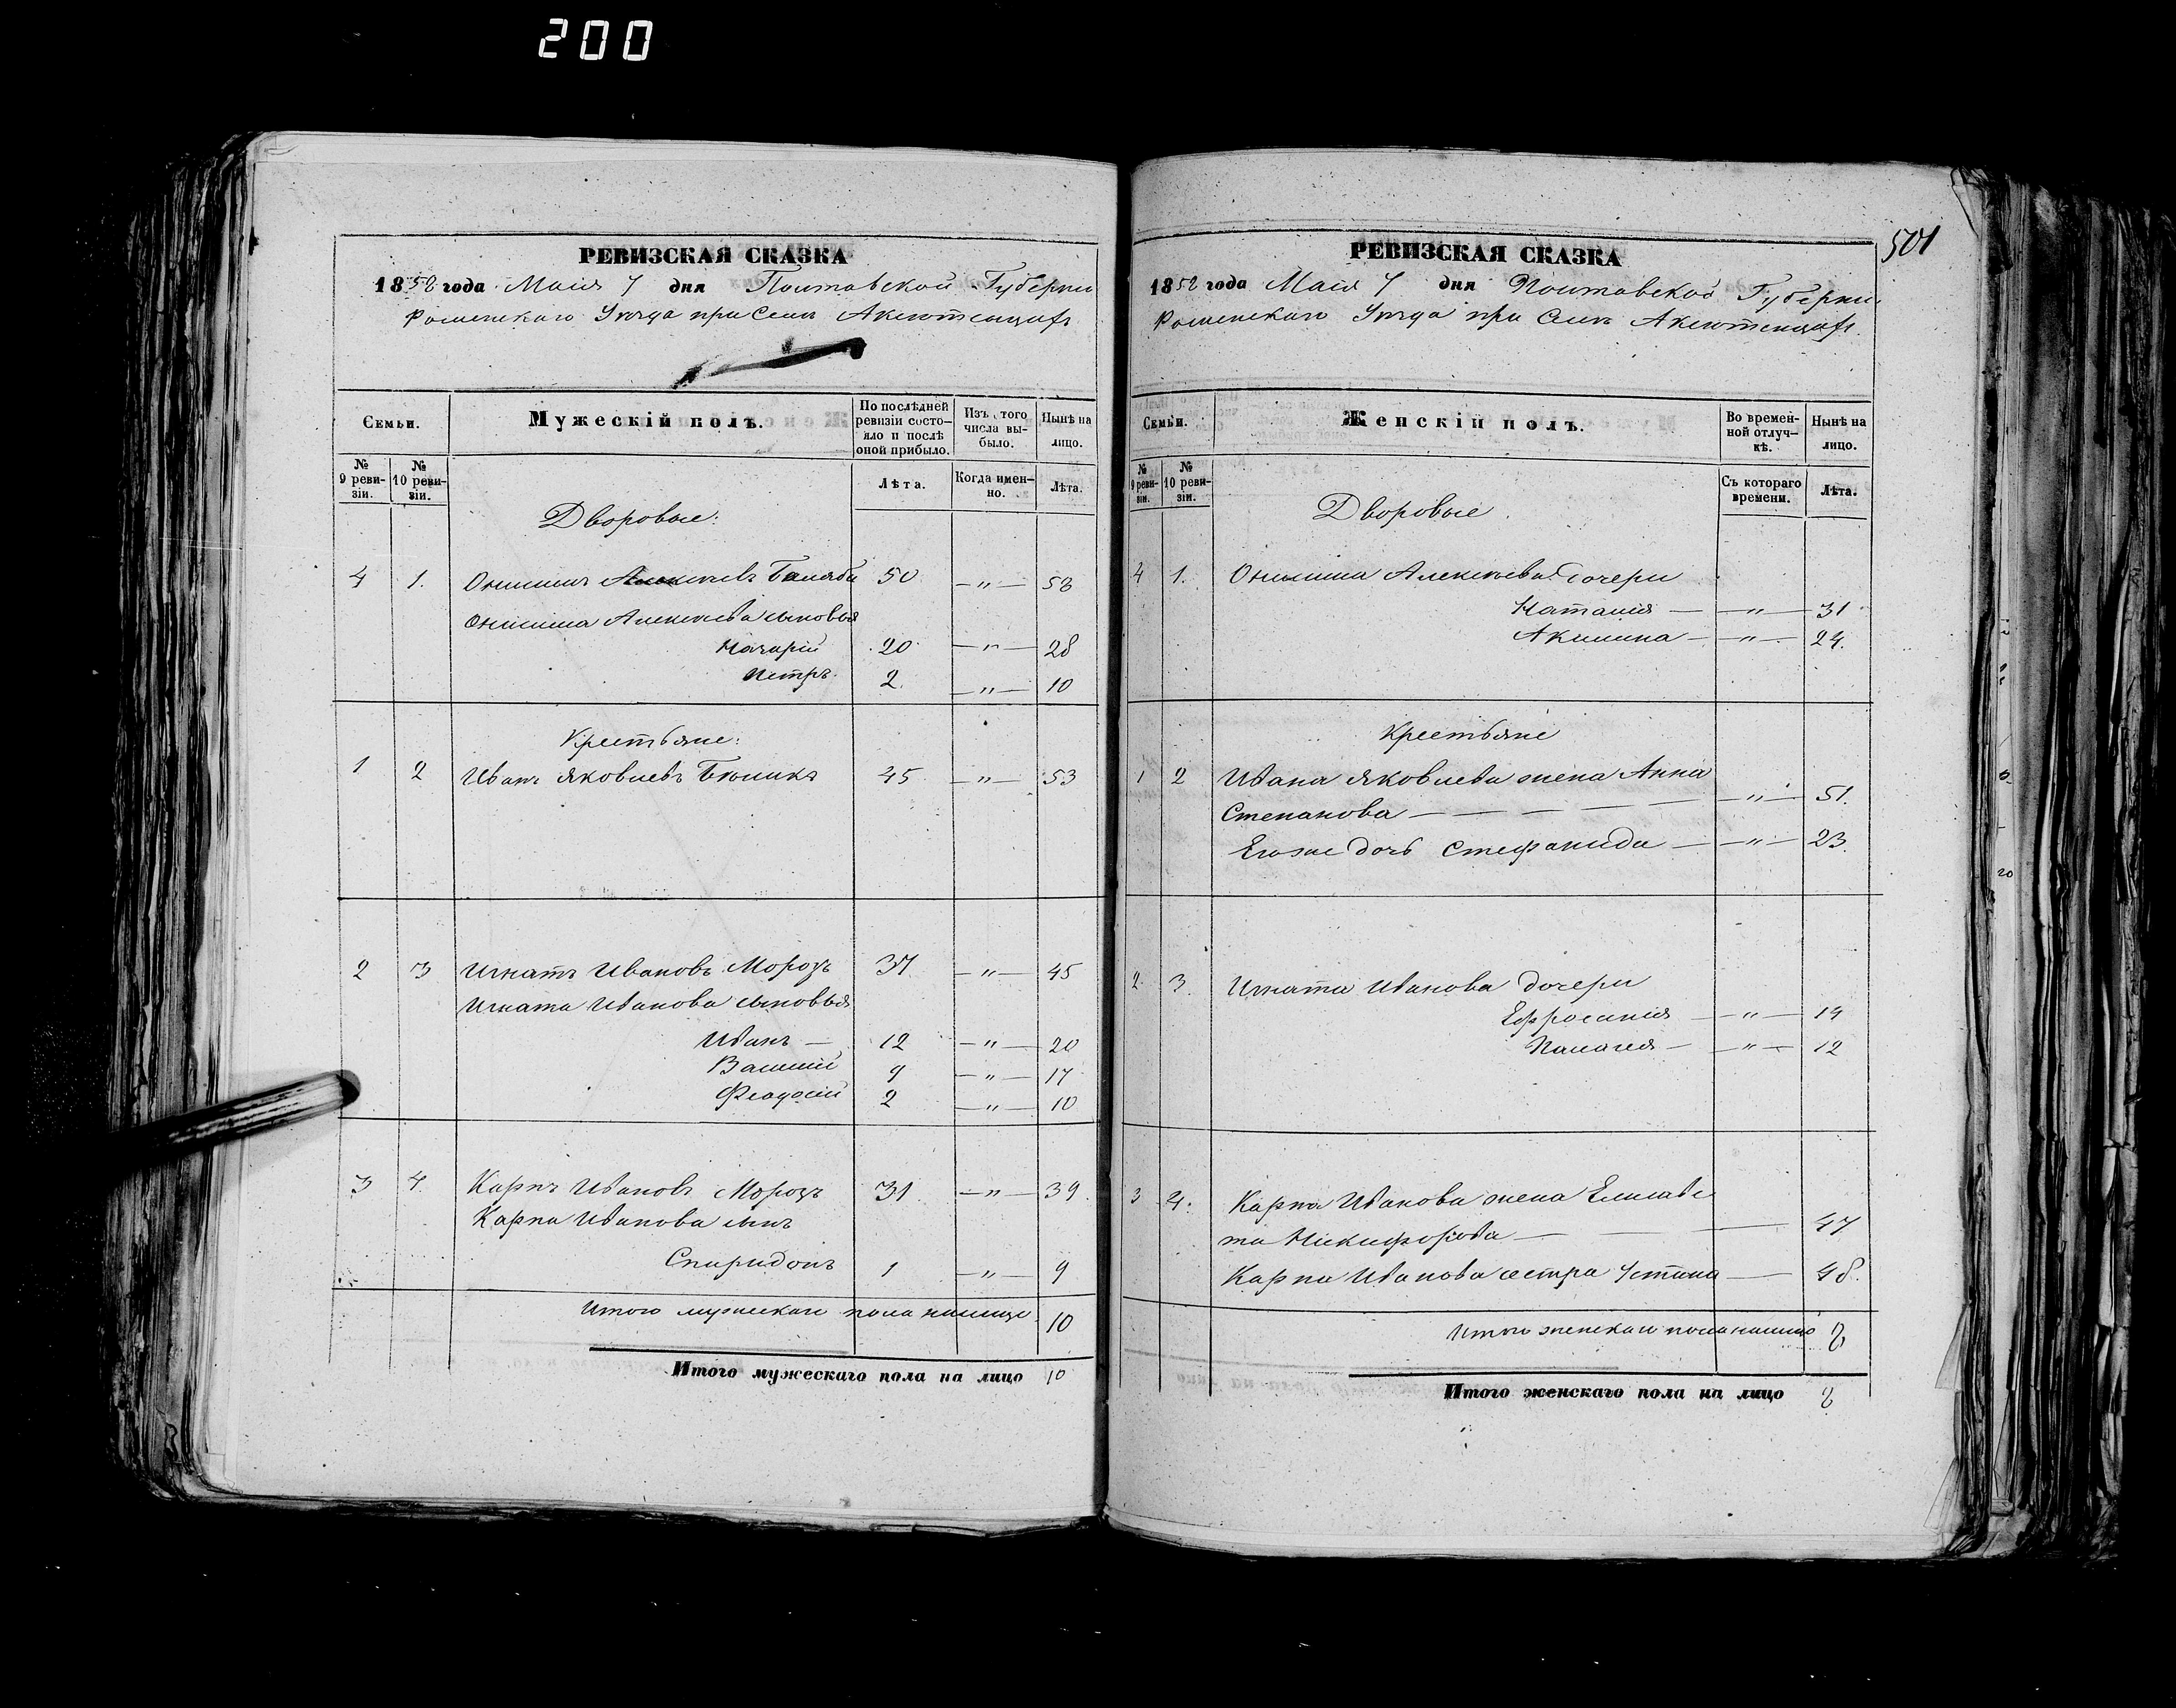 200
РЕВИЗСКАЯ СКАЗКА
1858 года Маія 7 дня Полтавской Губерніи
Роменскаго Уезда при Селе Аксютенцах
Семьи.
Мужескій полъ.
По послѣдней ревизіи состо-яло и послѣ оной прибыло.
Изъ того числа вы-было.
Нынѣ на лицо.
№ 9 реви-зіи.
№ 10 реви-зіи.
Лѣта.
Когда имен-но.
Лѣта.
Дворовые:
4 1. Онисимъ Алексеевъ 50 —„— 58
Онисима Алексеева сыновья
Назарій 20 —„— 28
Петръ 2 —„— 10
Крестьяне:
1 2 Иванъ Яковлевъ 45 —„— 53
2 3 Игнатъ Ивановъ Морозъ 37 —„— 45
Игната Иванова сыновья
Иванъ — 12 —„— 20
Василій 9 —„— 17
Феодосій 2 —„— 10
3 4. Карпъ Ивановъ Морозъ 31 —„— 39.
Карпа Иванова сынъ
Спиридонъ 1 —„— 9
Итого мужескаго пола налицо 10
Итого мужескаго пола на лицо 10
501
РЕВИЗСКАЯ СКАЗКА
1858 года Маія 7 дня Полтавской Губерніи
Роменскаго Уезда при Селе Аксютенцах.
Семьи.
Женскій полъ.
Во времен-ной отлуч-кѣ.
Нынѣ на лицо.
№ 9 реви-зіи.
№ 10 реви-зіи.
Съ котораго времени.
Лѣта.
Дворовые
4 1. Онисима Алексеева дочери
Наталія — —„— 31
Акилина — —„— 24.
Крестьяне
1 2 Ивана Яковлева жена Анна
Степанова — — — — —„— 51.
Его же дочь Стефанида — —„— 23.
2 3 Игната Иванова дочери
Ефросинія — —„— 19
Палагея — —„— 12
3 4. Карпа Иванова жена Елисаве
та Никифорова — — — 47
Карпа Иванова сестра Устина — — 48.
Итого женскаго пола налицо 8
Итого женскаго пола на лицо 8